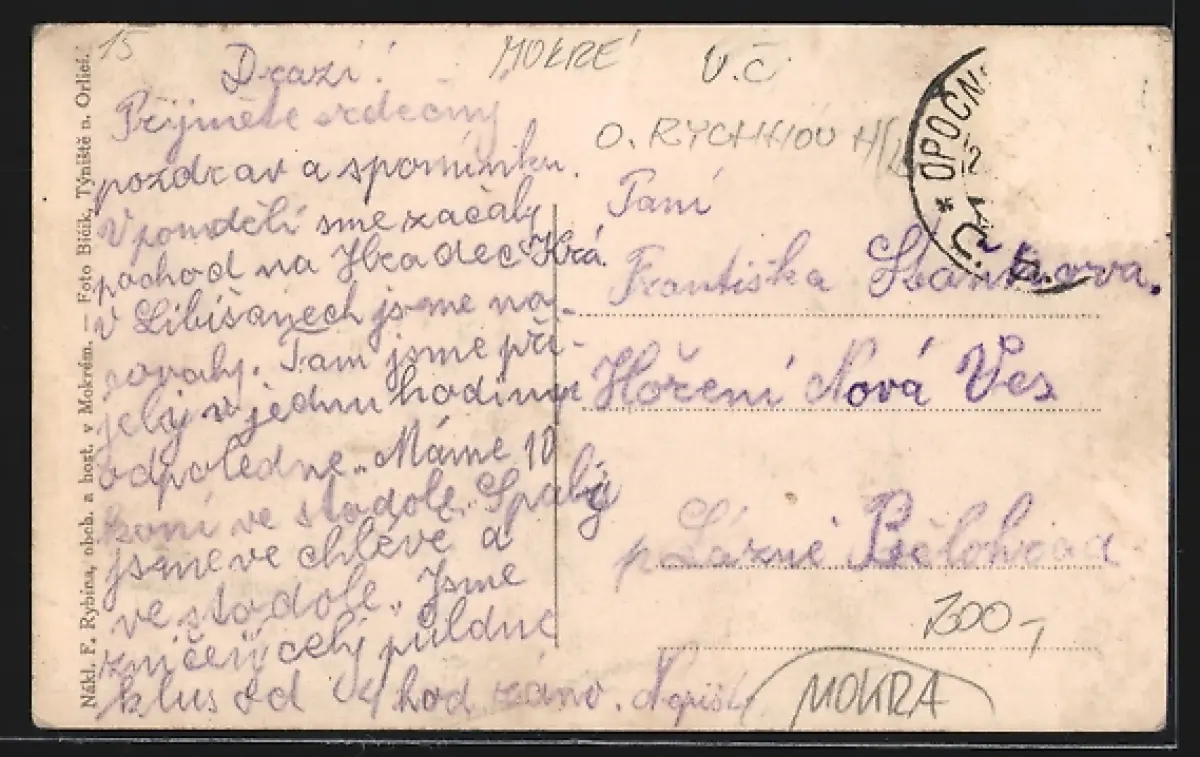 15
MOKRÉ
V.Č
O. RYCHNOV
Drazí!
Přijměte srdečný
pozdrav a spomínku.
V pondělí sme začaly
pochod na Hradec Krá.
v Libišanech jsme na-
povaly. Tam jsme při-
jely v jednu hodinu
odpoledne. Máme 10
koní ve stodole. Spaly
jsme ve chlévě a
ve stodole. Jsme
zničený celý půldne
klus od 4 hod ráno. Nepiště
Paní
Františka
Hoření Nová Ves
p Lázně Bělohrad
* OPOČN
300,-
MOKRA
Nákl. F. Rybína, obch. a host. v Mokrém. — Foto Bičík, Týniště n. Orlicí.